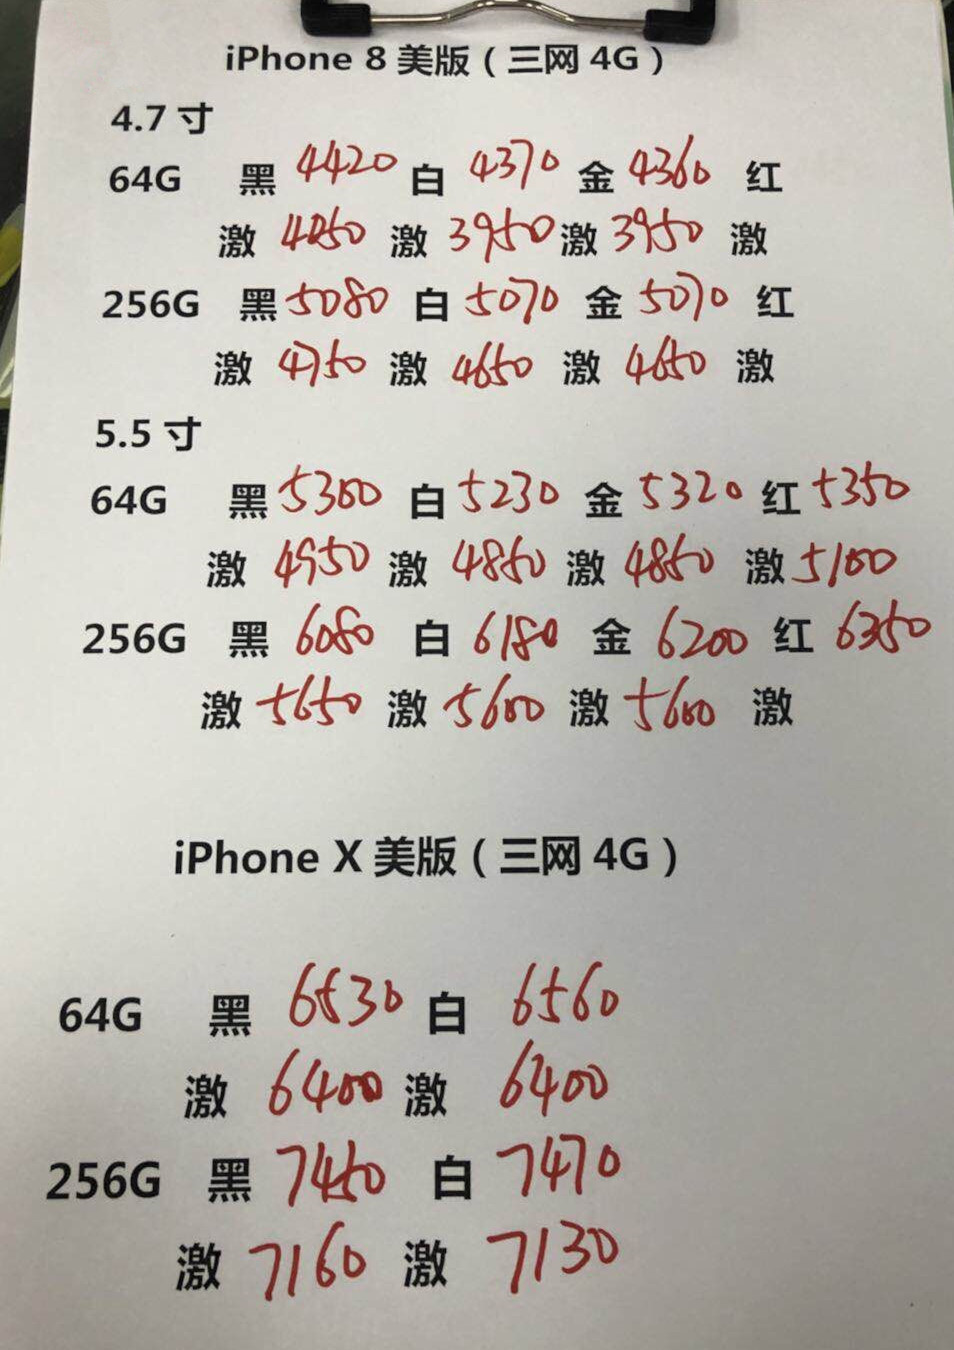 iPhone 8 美版（三网 4G）
4.7 寸
64G 黑 4420 白 4370 金 4360 红
激 4050 激 3950 激 3950 激
256G 黑 5080 白 5070 金 5070 红
激 4750 激 4650 激 4650 激
5.5 寸
64G 黑 5300 白 5230 金 5320 红 5350
激 4950 激 4850 激 4850 激 5100
256G 黑 6080 白 6180 金 6200 红 6350
激 5650 激 5600 激 5600 激
iPhone X 美版（三网 4G）
64G 黑 6530 白 6560
激 6400 激 6400
256G 黑 7450 白 7470
激 7160 激 7130